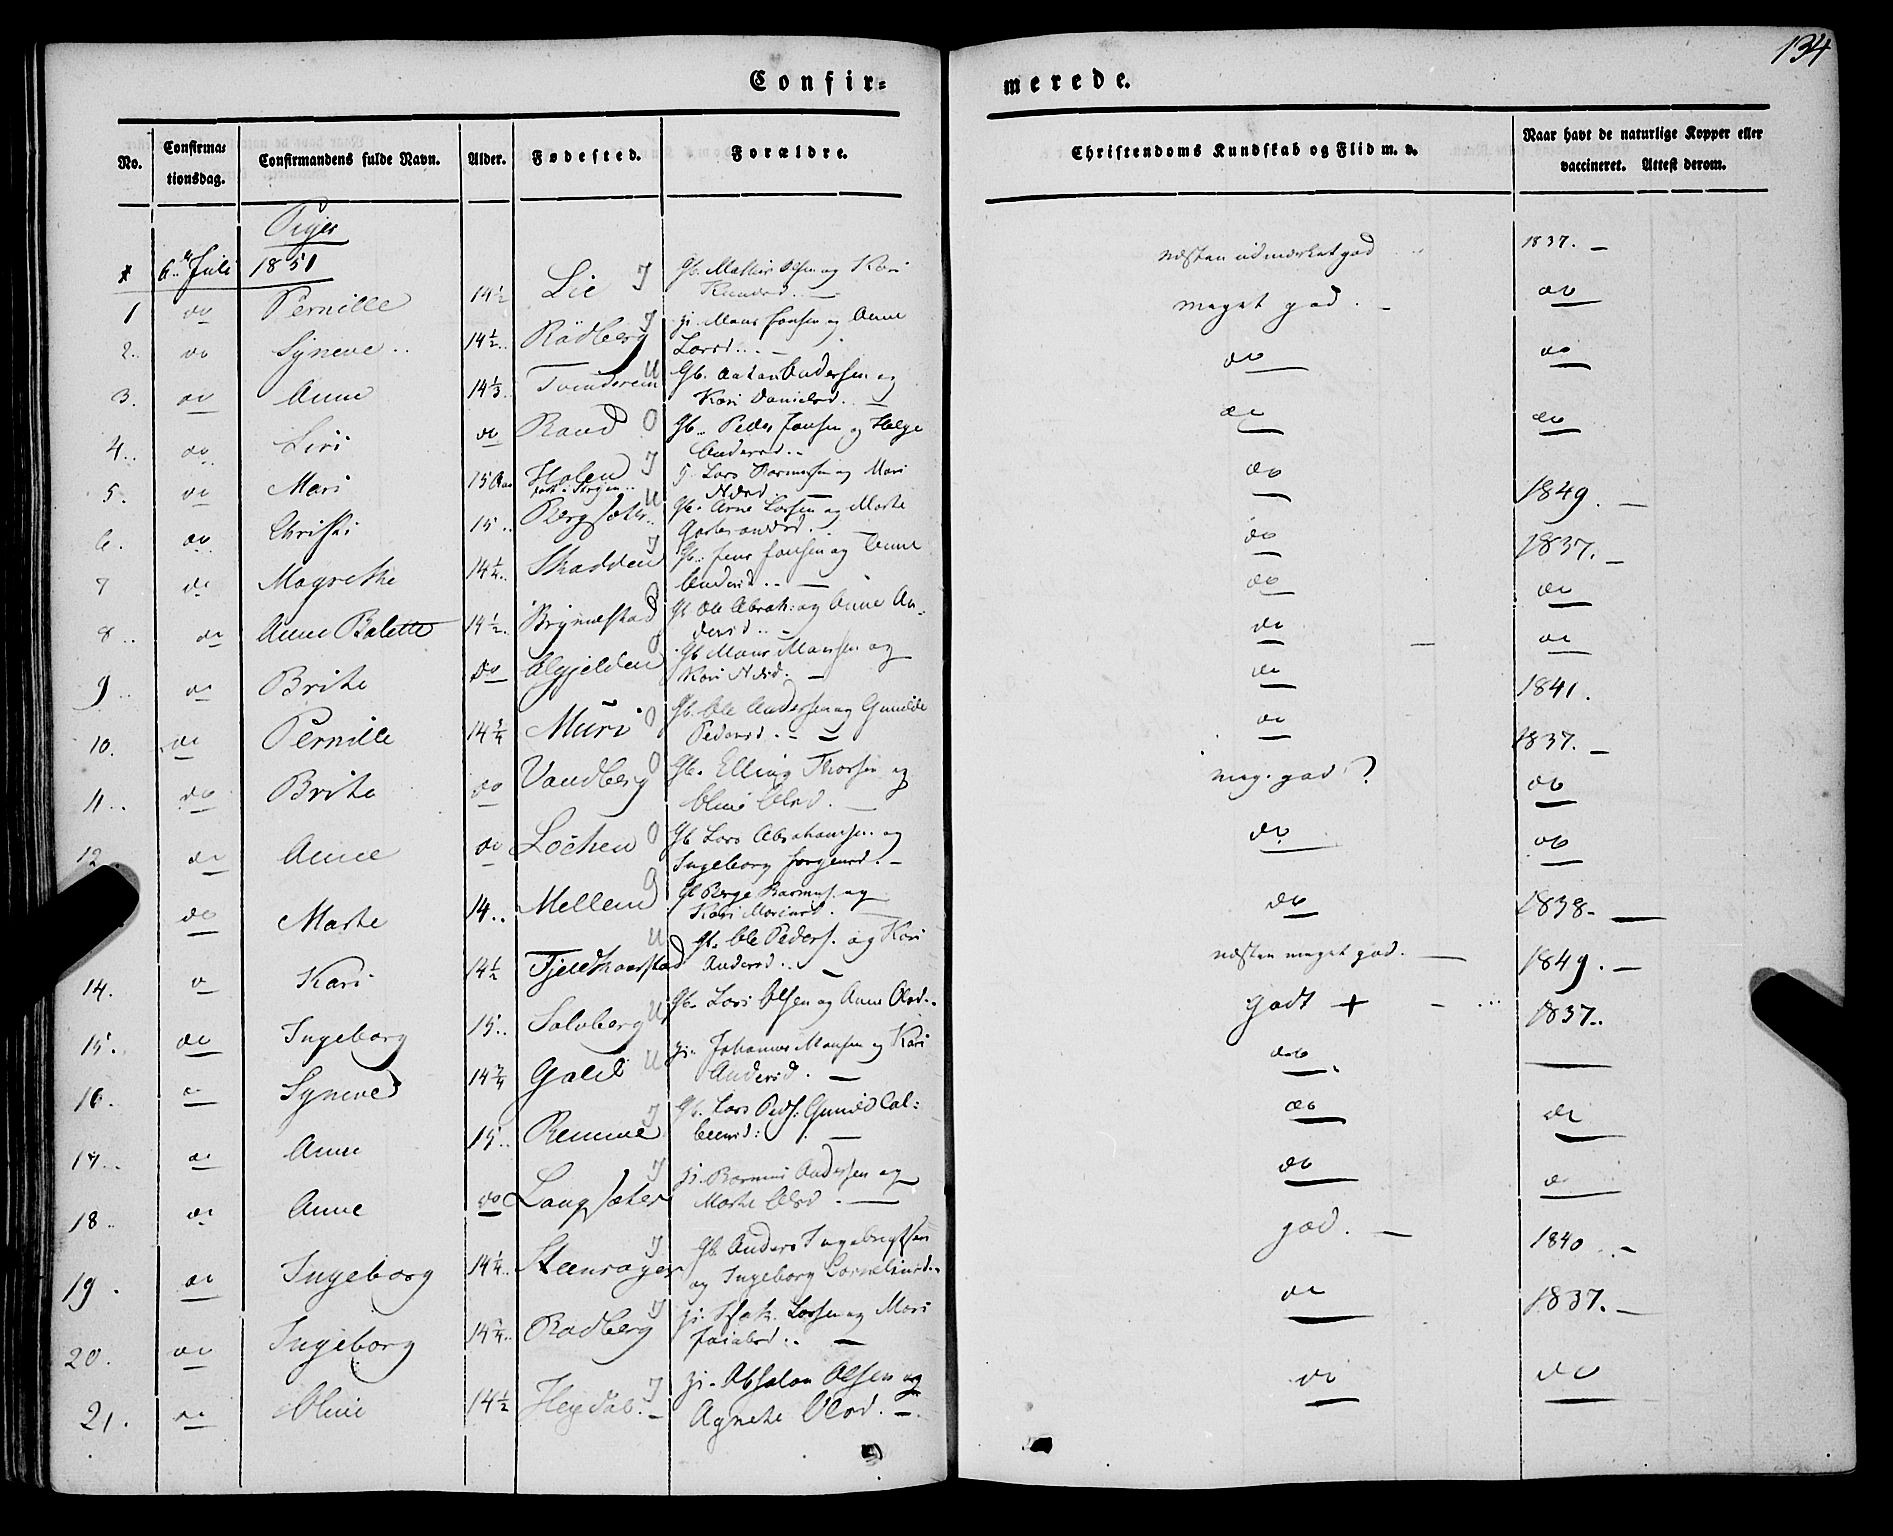 134
Confir= merede.
No. Confirma= tionsdag. Confirmandens fulde Navn. Alder. Fødested. Forældre. Christendoms Kundskab og Flid m. v. Naar havt de naturlige Kopper eller vaccineret. Attest derom.
Piger
6te Juli 1851
1 do Pernille 14½ Lie J Gb. Mathis Olsen og Kari næsten udmærket god 1837. —
2.. do Syneve.. 14½.. Rødberg J Mons Jonsen og Anne Larsd... — meget god. — do
3. do Anne 14⅓ U Gb. Anton Andersen og Kari Danielsd. — do do
4.. do Siri do Rand O Gb. Peder Jonsen og Helge Andersd.. do do
5. do Mari 15 Aar Holen J Lars Rasmusen og Mari do 1849. —
6. do Christi 15.. Bergsæter.. U Gb. Arne Larsen og Marte do 1837. —
7 do Magrethe 14¼.. Skadden J Gb. Jens Jonsen og Anne Andersd.. — do do
8.. do Anne Bolette 14½. Brynnestad Gb Ole Abrah: og Anne An- dersd.. — do — do
9.. do Brite Do Elgjelden O Gb Mons Monsen og Kari — do 1841.
10. do Pernille 14¾ Muri O Gb. Ole Andersen og Gunilde Pedersd. — do 1837. —
11.. do Brite do Vandberg O Gb. Elling Thorsen og Oline Olsd. — meg. god? do
12 do Anne do Løchen O Gb Lars Abrahamsen og Ingeborg Jørgensd. — do do
do Marte 14.. Mellem Gb Berge Rasmus. og Kari — do 1838. —
14. do Kari 14½ Tjeldhaarstad U Gb. Ole Peders. og Kari Andersd.. — næsten meget god. — 1849. —
15. do Ingeborg 15.. Solvberg U Gb. Lars Olsen og Anne Olsd.. godt + — 1837..
16. do Syneve 14¾ Goleit U Johannes Monsen og Kari Andersd. — do —
17.. do Anne 15.. Remme J Gb. Lars Peds: Gunild Col: — do do
18.. do Anne do Langsæter J Rasmus Andersen og Marte Olsd. — do do
19. do Ingeborg 14¼.. Steensager J Gb. Anders Ingebrigtsen og Ingeborg Corneliusd.. god. — 1840.. —
20. do Ingeborg 14¾.. Rødberg J Isak. Larsen og Mari — do 1837. —
21. do Oline 14½ Hegdal. — J Absalon Olsen og Agnete Olsd. — do do